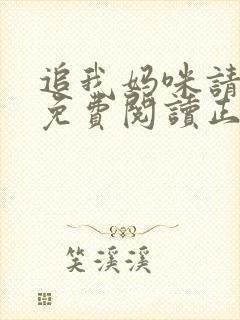 追我妈咪請
免費閱讀正
笑溪溪